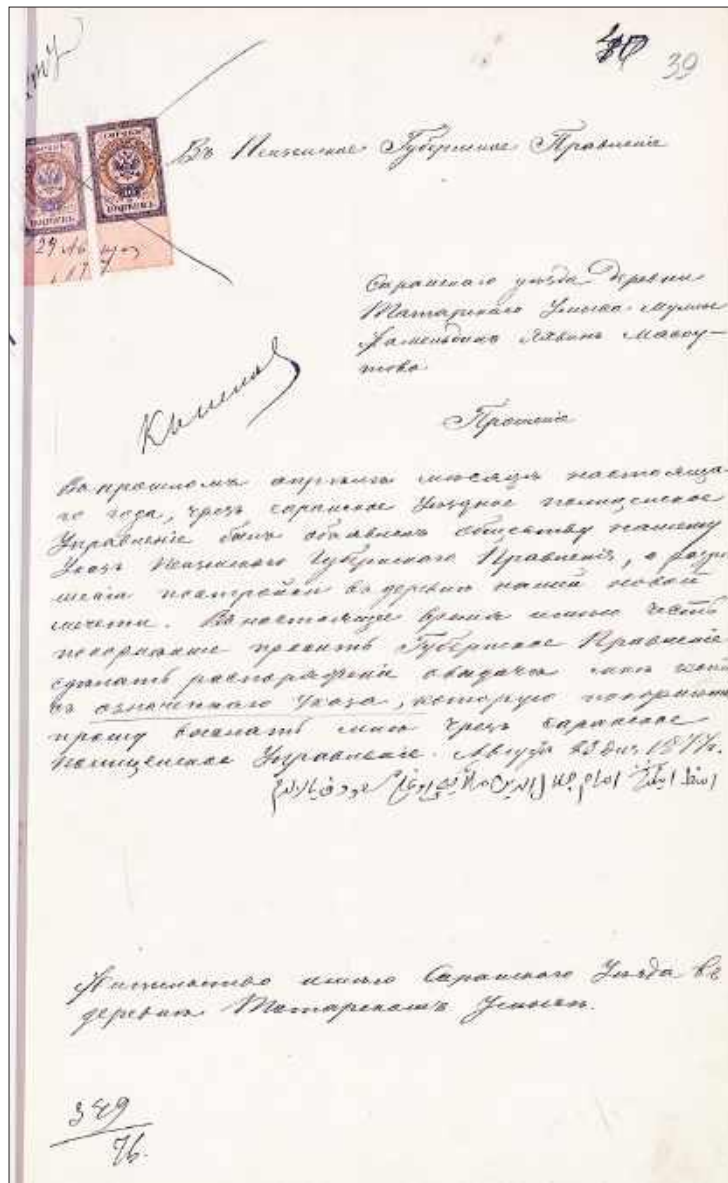 39
Въ Пензенское Губернское Правленіе
Саранскаго уѣзда деревни
Татарскаго Умыса муллы
Максу-
това
Прошеніе
Въ прошломъ апрѣлѣ мѣсяцѣ настояща-
го года, чрезъ Саранское Уѣздное Полицейское
Управленіе былъ объявленъ обществу нашему
Указъ Пензенскаго Губернскаго Правленія, о разрѣ
шеніи постройки въ деревнѣ нашей новой
мечети. Въ настоящее время имѣю честь
покорнѣйше просить Губернское Правленіе
сдѣлать распоряженіе о выдачѣ мнѣ копіи
съ означеннаго Указа, которую покорнѣйше
прошу выслать мнѣ чрезъ Саранское
Полицейское Управленіе. Августа 23 дня 1877 г.
امام جلال الدين
Жительство имѣю Саранскаго Уѣзда въ
деревнѣ Татарскомъ Умысѣ.
349
76.